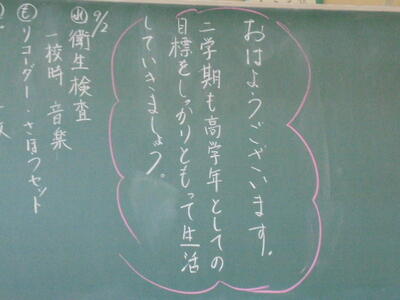 おはようございます。
二学期も高学年としての
目標をしっかりともって生活
していきましょう。
9/2
衛生検査
一校時 音楽
も リコーダー・さほうセット